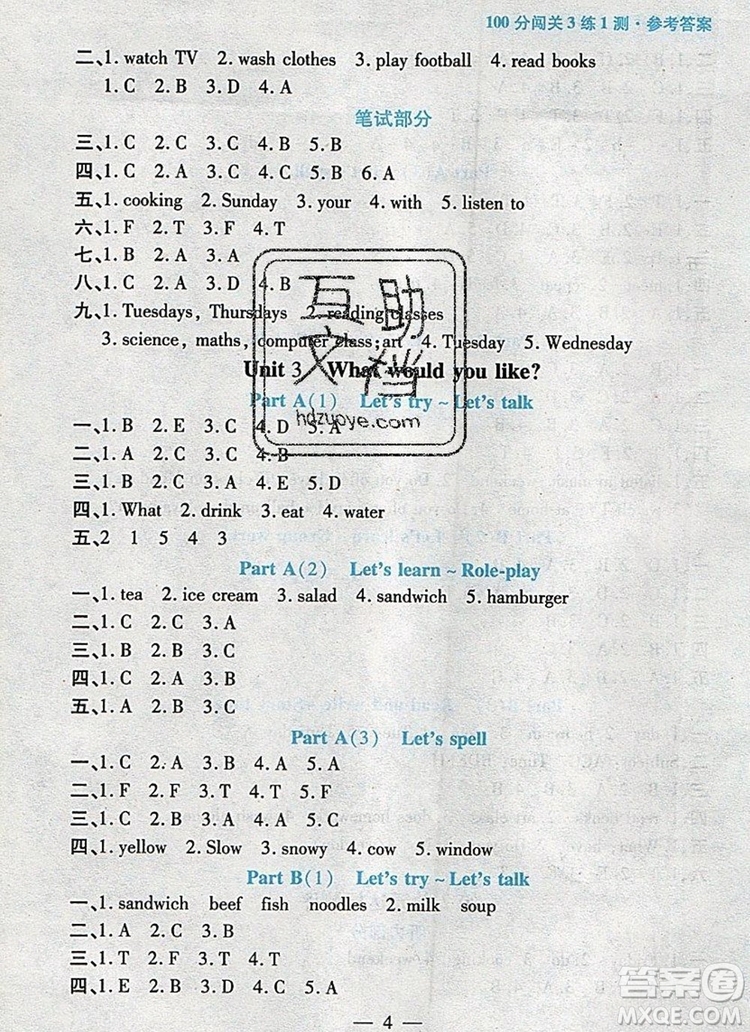 100分闯关3练1测·参考答案
二、1. watch TV 2. wash clothes 3. play football 4. read books
1. C 2. B 3. D 4. A
笔试部分
三、1. C 2. C 3. C 4. B 5. B
四、1. C 2. A 3. C 4. B 5. B 6. A
五、1. cooking 2. Sunday 3. your 4. with 5. listen to
六、1. F 2. T 3. F 4. T
七、1. B 2. A 3. A
八、1. C 2. A 3. D 4. B
九、1. Tuesdays, Thursdays 2. reading classes
3. science, maths, computer class; art 4. Tuesday 5. Wednesday
Unit 3 What would you like?
Part A(1) Let's try ~ Let's talk
一、1. B 2. E 3. C 4. D 5. A
二、1. A 2. C 3. C 4. B
三、1. C 2. B 3. A 4. E 5. D
四、1. What 2. drink 3. eat 4. water
五、2 1 5 4 3
Part A(2) Let's learn ~ Role-play
一、1. tea 2. ice cream 3. salad 4. sandwich 5. hamburger
二、1. C 2. C 3. A
三、1. C 2. B 3. C
四、1. A 2. B 3. C
Part A(3) Let's spell
一、1. C 2. A 3. B 4. A 5. A
二、1. F 2. F 3. T 4. T 5. F
三、1. B 2. C 3. A 4. A 5. C
四、1. yellow 2. Slow 3. snowy 4. cow 5. window
Part B(1) Let's try ~ Let's talk
一、1. sandwich beef fish noodles 2. milk soup
二、1. A 2. C 3. B
三、1. T 2. F 3. T 4. T
四、1. E 2. B 3. D 4. A 5. C
— 4 —
互助
文档
hdzuoye.com
答案圈
MXQE.COM